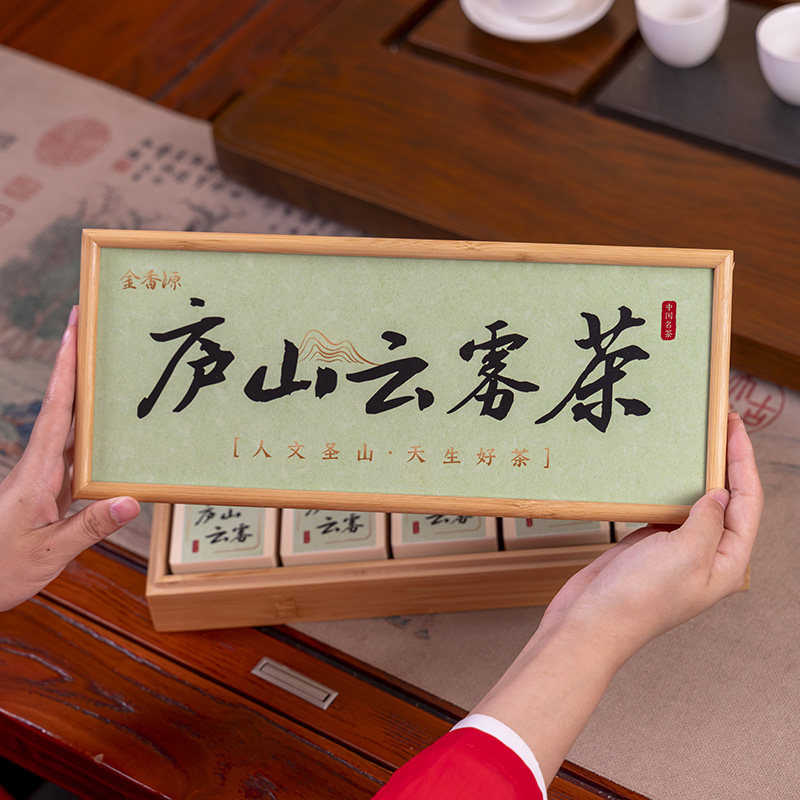 金香源
庐山云雾茶
中国名茶
[人文圣山·天生好茶]
庐山
云雾
庐山
云雾
云雾